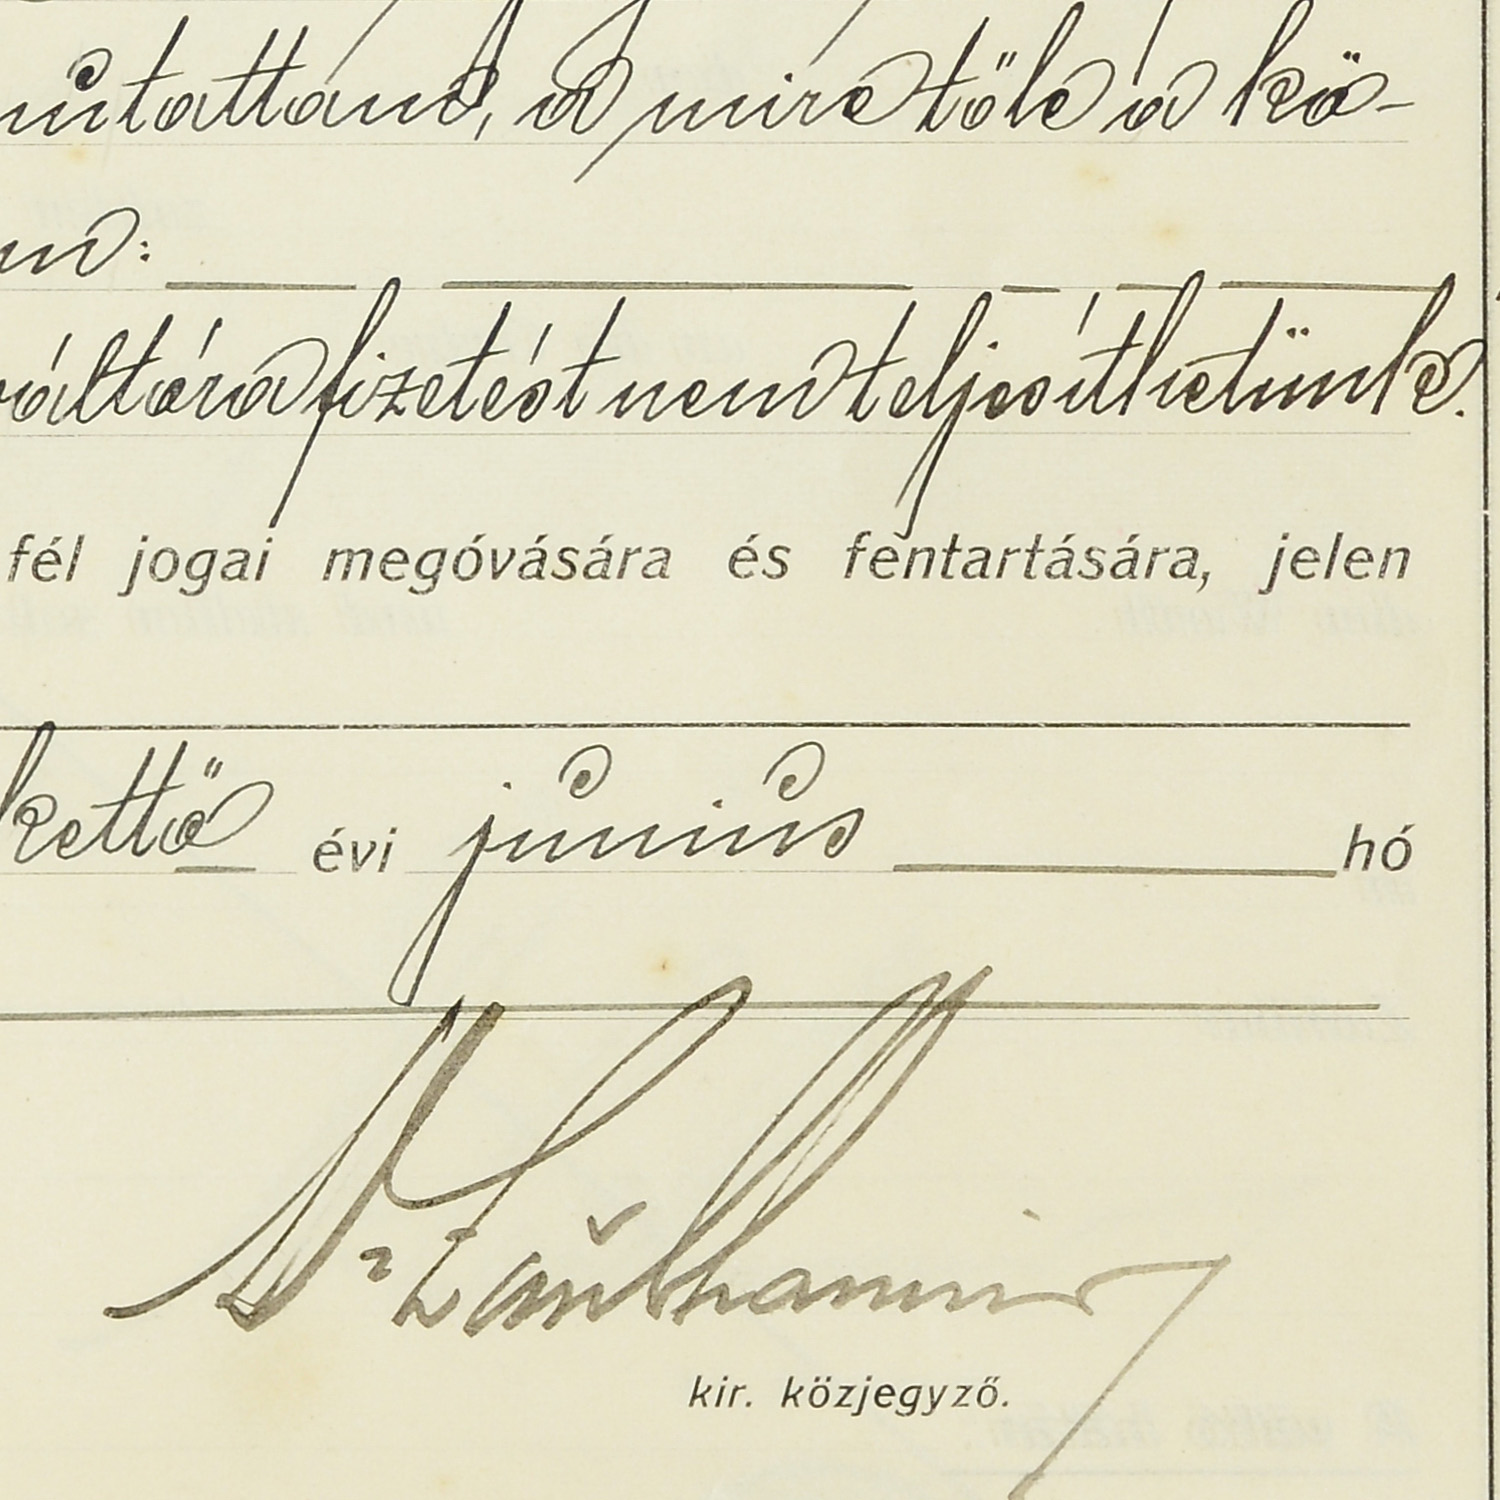 mutattam, a mire tőle a kö-
um:
váltóra fizetést nem teljesíthetünk.
fél jogai megóvására és fentartására, jelen
kettő évi június hó
kir. közjegyző.